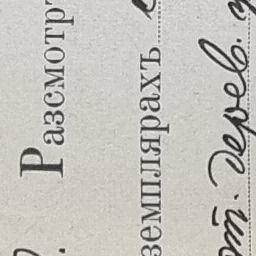 Разсмотр
земплярахъ
т. дерев.